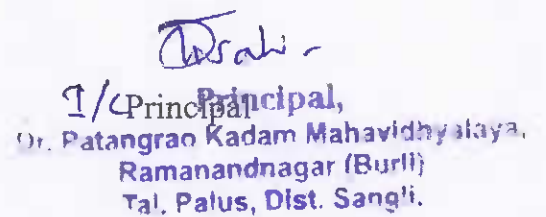 I/c Principal Principal,
Dr. Patangrao Kadam Mahavidhyalaya,
Ramanandnagar (Burli)
Tal. Palus, Dist. Sangli.